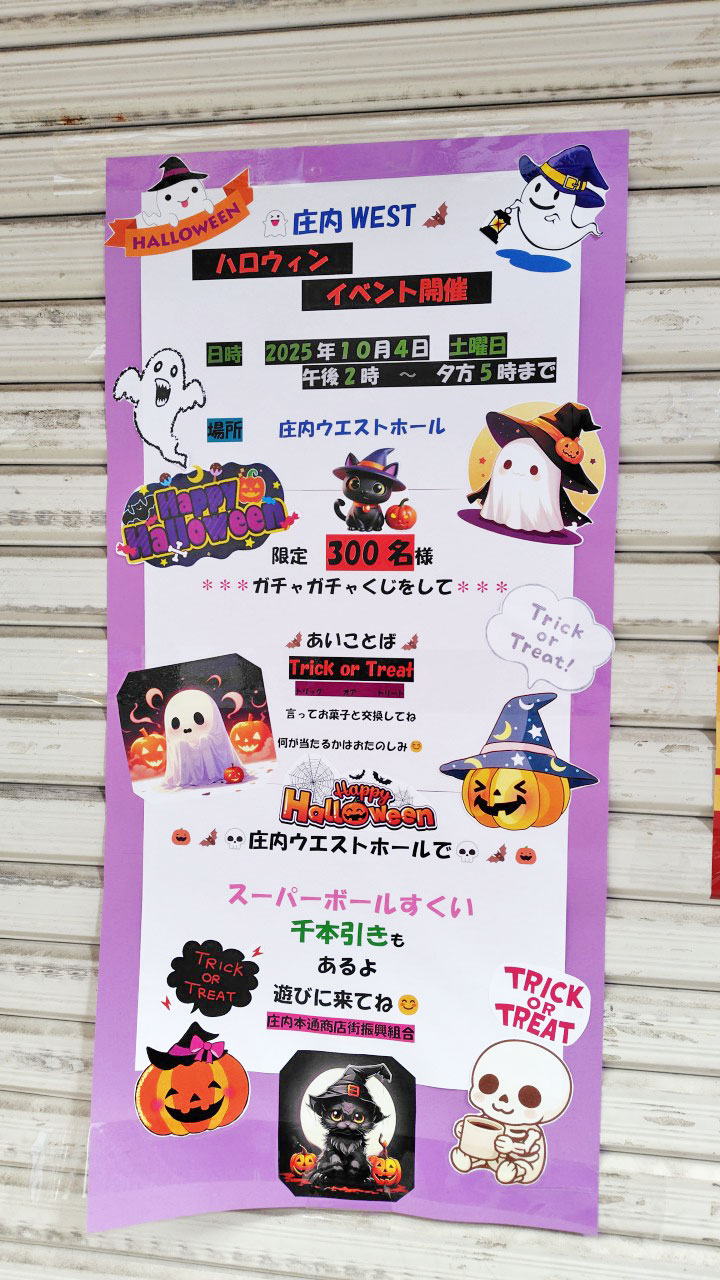 HALLOWEEN
庄内WEST
ハロウィン
イベント開催
日時 2025年10月4日 土曜日
午後2時 ～ 夕方5時まで
場所 庄内ウエストホール
Happy
Halloween
限定 300名様
***ガチャガチャくじをして***
Trick
or
Treat!
あいことば
Trick or Treat
トリック オア トリート
言ってお菓子と交換してね
何が当たるかはおたのしみ😊
Happy
Halloween
庄内ウエストホールで
スーパーボールすくい
千本引きも
あるよ
遊びに来てね😊
庄内本通商店街振興組合
TRICK
OR
TREAT
TRICK
OR
TREAT